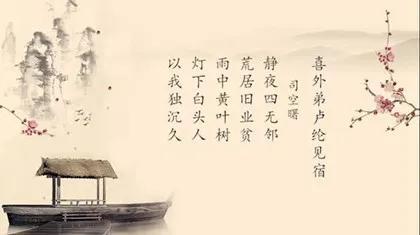 喜外弟卢纶见宿
司空曙
静夜四无邻
荒居旧业贫
雨中黄叶树
灯下白头人
以我独沉久